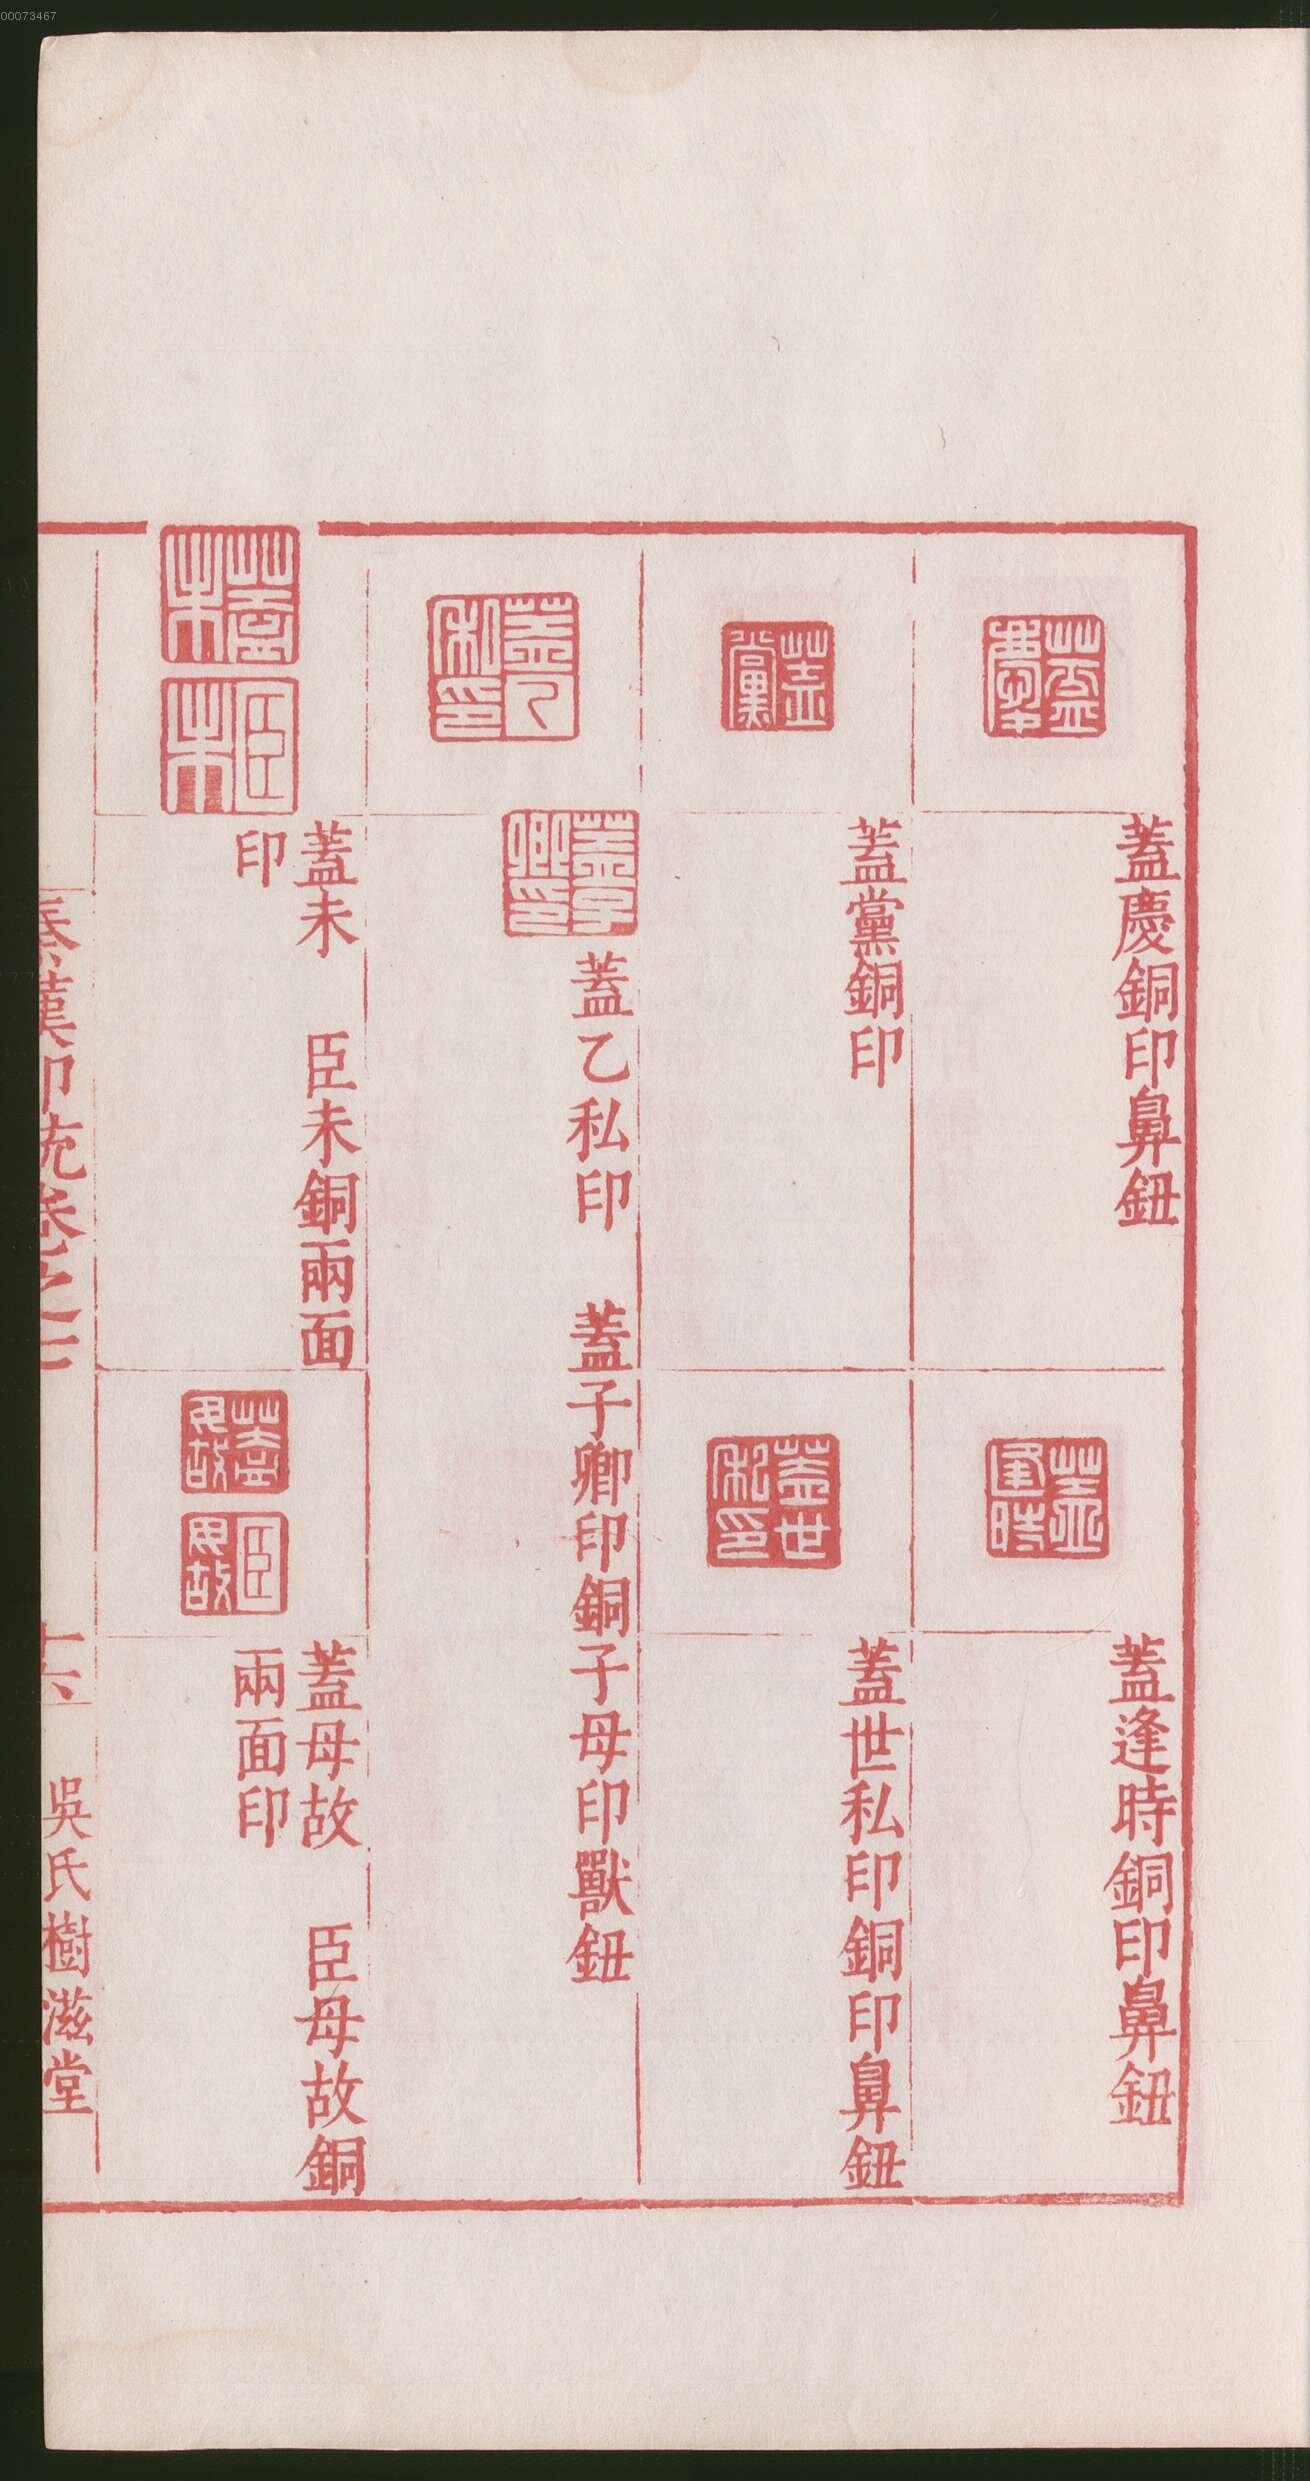 00073467
蓋慶銅印鼻鈕
蓋逢時銅印鼻鈕
蓋黨銅印
蓋世私印銅印鼻鈕
蓋乙私印　蓋子卿印銅子母印獸鈕
蓋未　臣未銅兩面
印
蓋母故　臣母故銅
兩面印
秦漢印統卷之二
十六
吳氏樹滋堂